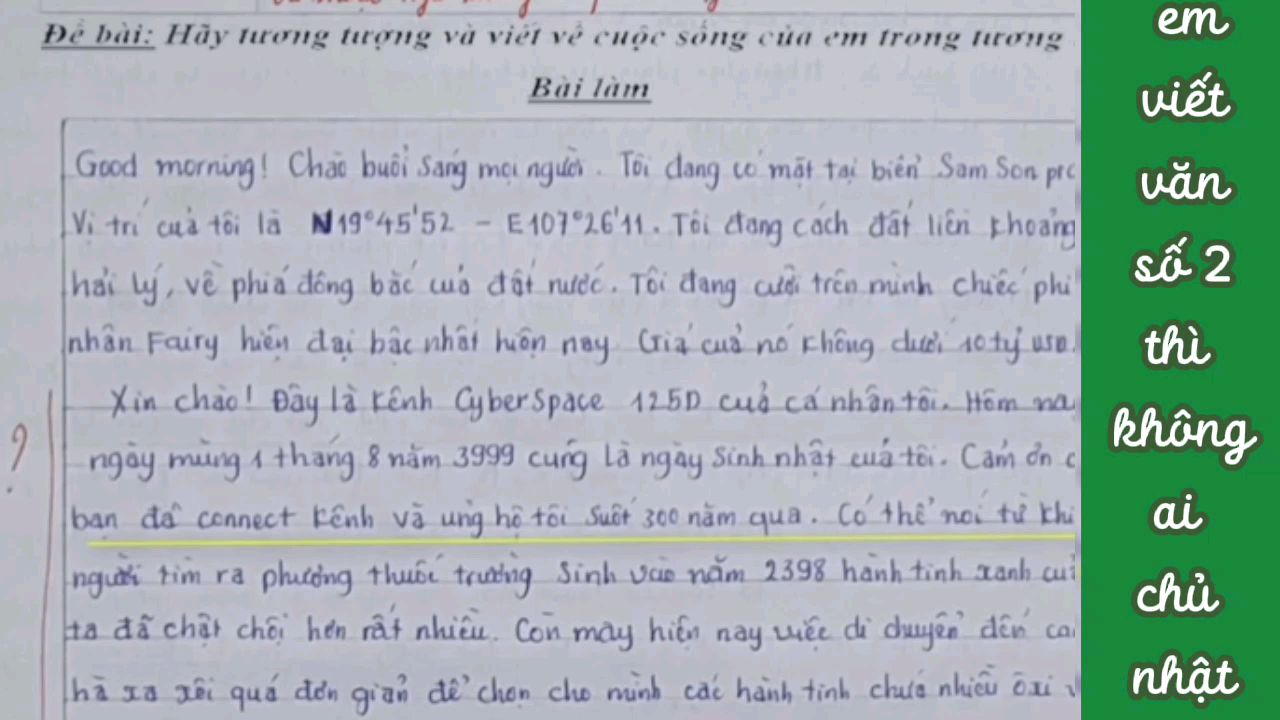 Đề bài: Hãy tưởng tượng và viết về cuộc sống của em trong tương
Bài làm
Good morning! Chào buổi sáng mọi người. Tôi đang có mặt tại biển Sầm Sơn
Vị trí của tôi là N19°45'52 - E107°26'11. Tôi đang cách đất liền khoảng
hải lý, về phía đông bắc của đất nước. Tôi đang cưỡi trên mình chiếc phi
nhân Fairy hiện đại bậc nhất hiện nay. Giá cuả nó không dưới 10 tỷ USD.
Xin chào! Đây là kênh CyberSpace 125D cuả cá nhân tôi. Hôm na
ngày mùng 1 tháng 8 năm 3999 cũng là ngày sinh nhật cuả tôi. Cảm ơn c
bạn đã connect kênh và ủng hộ tôi suốt 300 năm qua. Có thể nói từ khi
người tìm ra phương thuốc trường sinh vào năm 2398 hành tinh xanh cuả
ta đã chật chội hơn rất nhiều. Còn mày hiện nay việc di chuyển đến
hà xa xôi quá đơn giản để chọn cho mình các hành tinh chứa nhiều ôxi
em
viết
văn
số 2
thì
không
ai
chủ
nhật